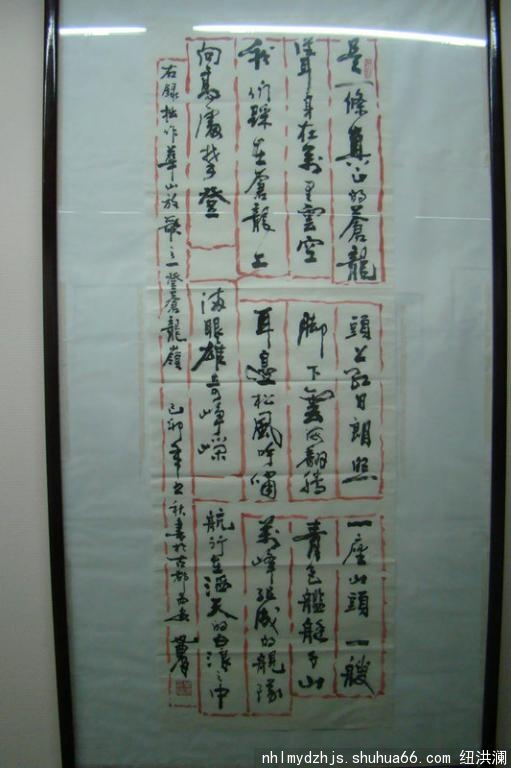 是一條真正的蒼龍
聳身在萬里雲空
我們踩在蒼龍上
向高處攀登
頭上紅日朗照
脚下雲雨翻騰
耳邊松風吟嘯
滿眼雄奇崢嶸
一座山頭一艘
青色艦艇千山
萬峰組成的艦隊
航行在滿天的白浪之中
右録拙作華山放歌之一登蒼龍嶺 己卯年秋書於古都西安
nhlmydzhjs.shuhua66.com 纽洪澜